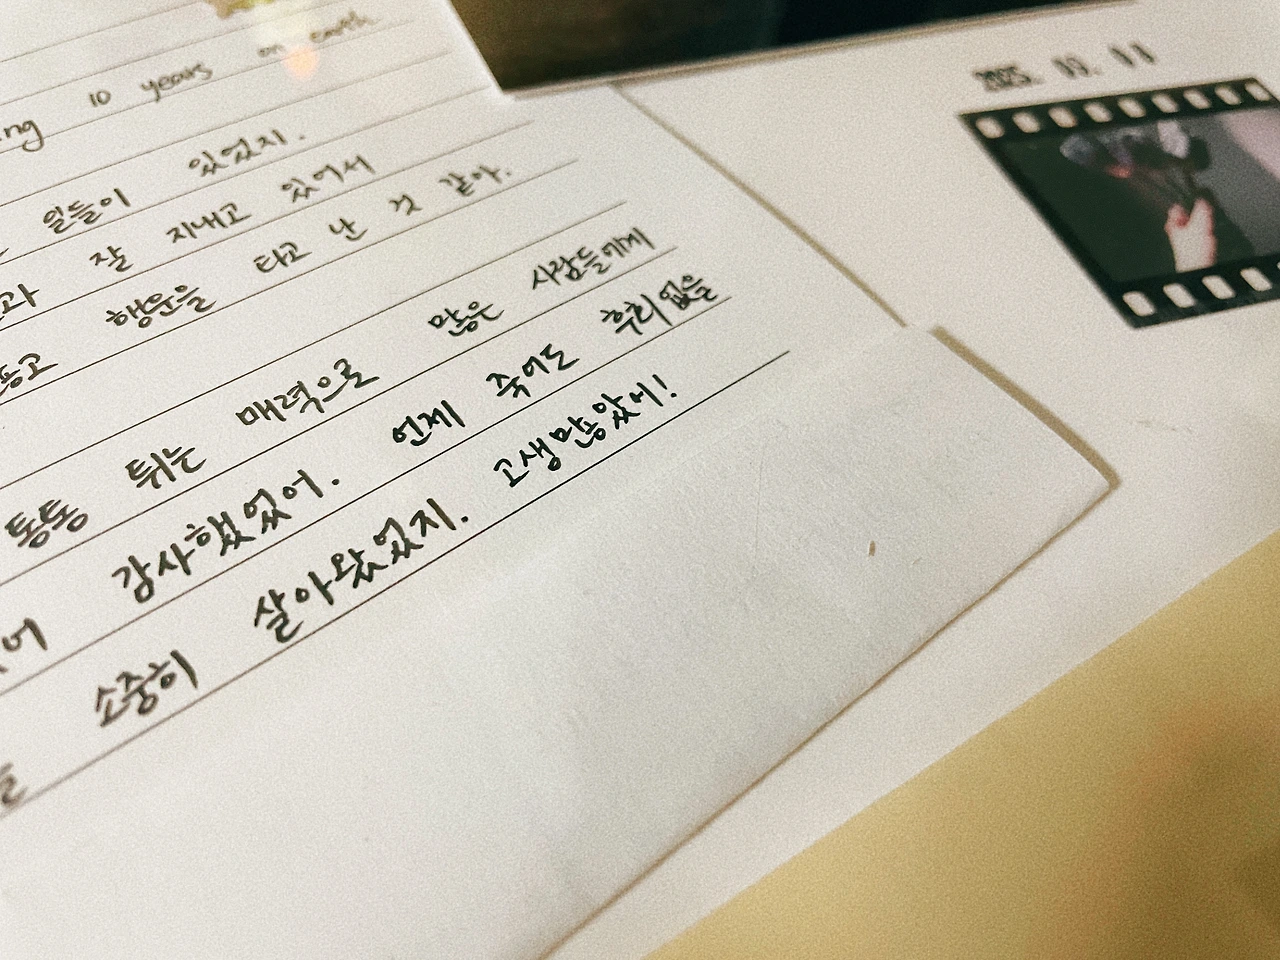 ing 10 years on earth.
일들이 있었지.
과 잘 지내고 있어서
행운을 타고 난 것 같아.
통통 튀는 매력으로 많은 사람들에게
감사했었어. 언제 죽어도 후회없을
소중히 살아왔었지. 고생많았어!
2025. 11. 11